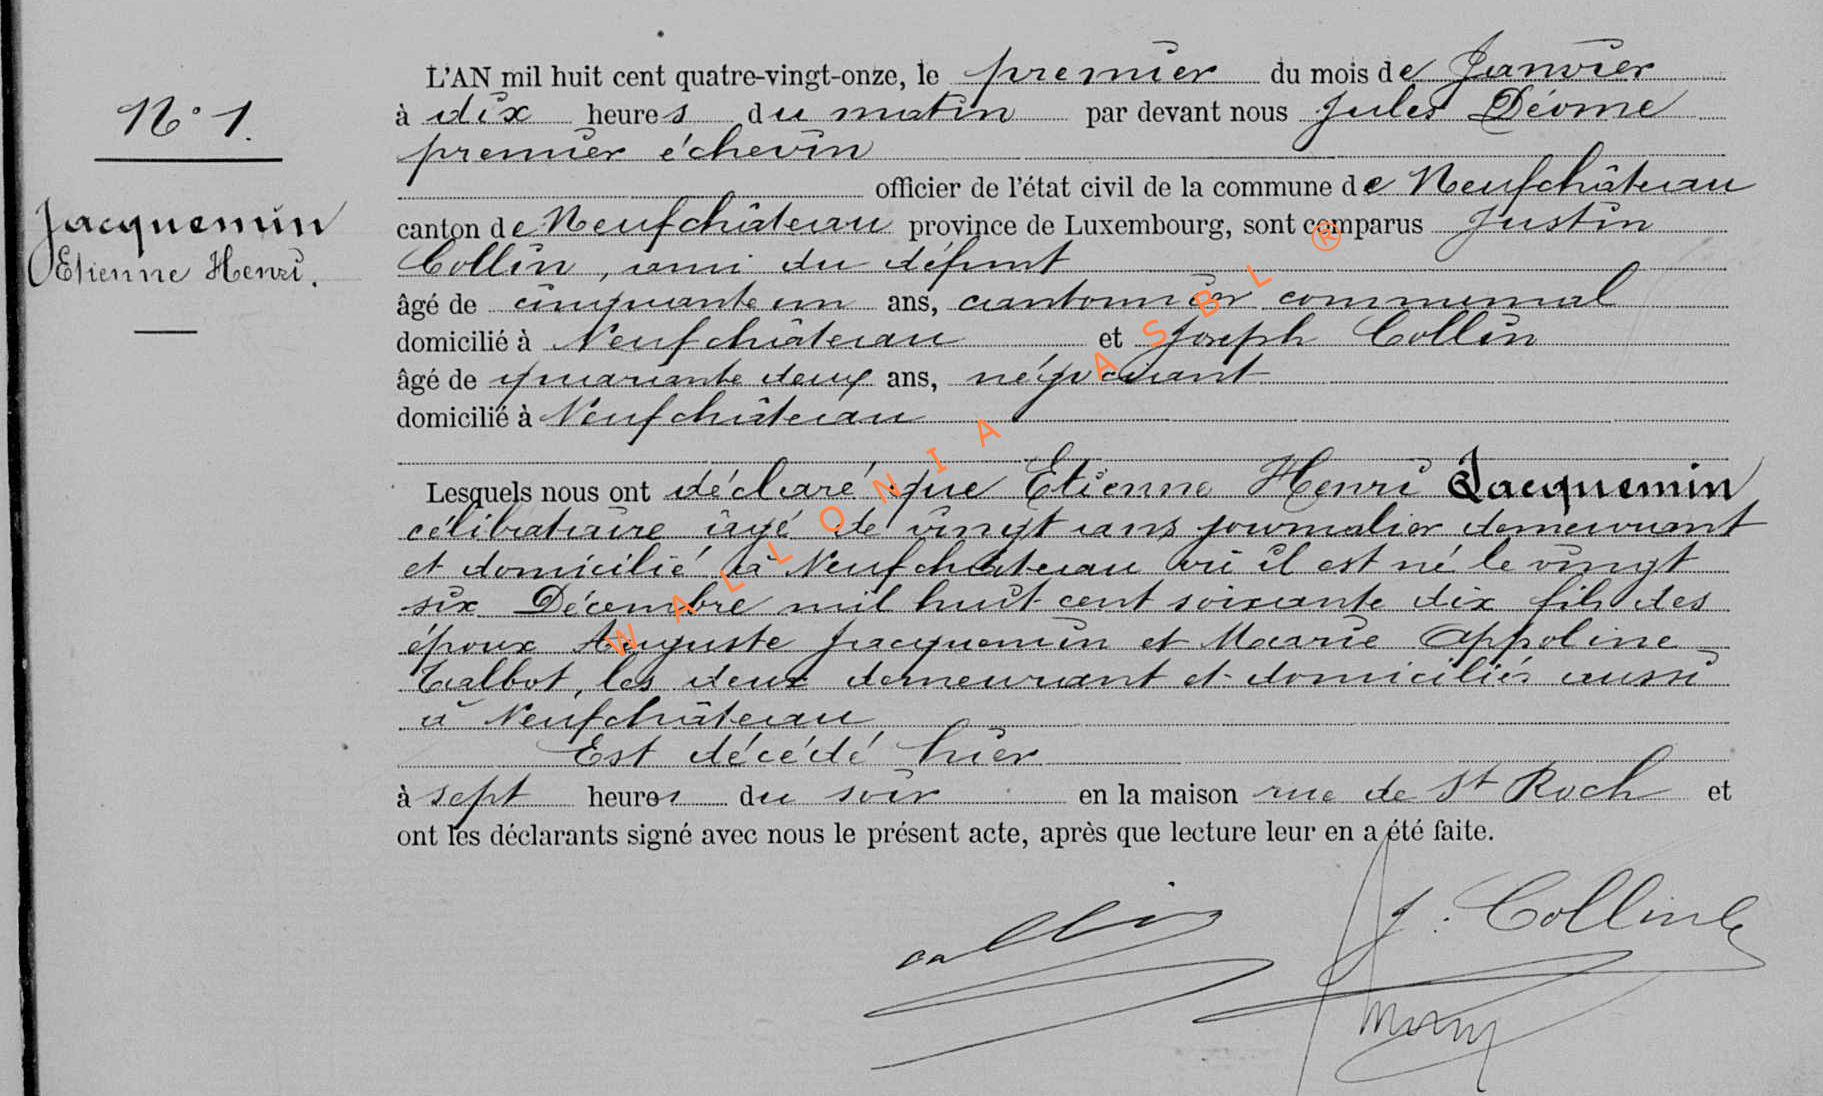 N° 1.
Jacquemin
Etienne Henri.
L'AN mil huit cent quatre-vingt-onze, le premier du mois de Janvier
à dix heures du matin par devant nous Jules Déome
premier échevin
officier de l'état civil de la commune de Neufchâteau
canton de Neufchâteau province de Luxembourg, sont comparus Justin
Collin, ami du défunt
âgé de cinquante un ans, cantonnier communal
domicilié à Neufchâteau et Joseph Collin
âgé de quarante deux ans, négociant
domicilié à Neufchâteau
Lesquels nous ont déclaré que Etienne Henri Jacquemin
célibataire âgé de vingt ans journalier demeurant
et domicilié à Neufchâteau où il est né le vingt
six Décembre mil huit cent soixante dix fils des
époux Auguste Jacquemin et Marie Appoline
Talbot, les deux demeurant et domiciliés aussi
à Neufchâteau
Est décédé hier
à sept heures du soir en la maison rue de St Roch et
ont les déclarants signé avec nous le présent acte, après que lecture leur en a été faite.
J. Collin
WALLONIA ASBL ®